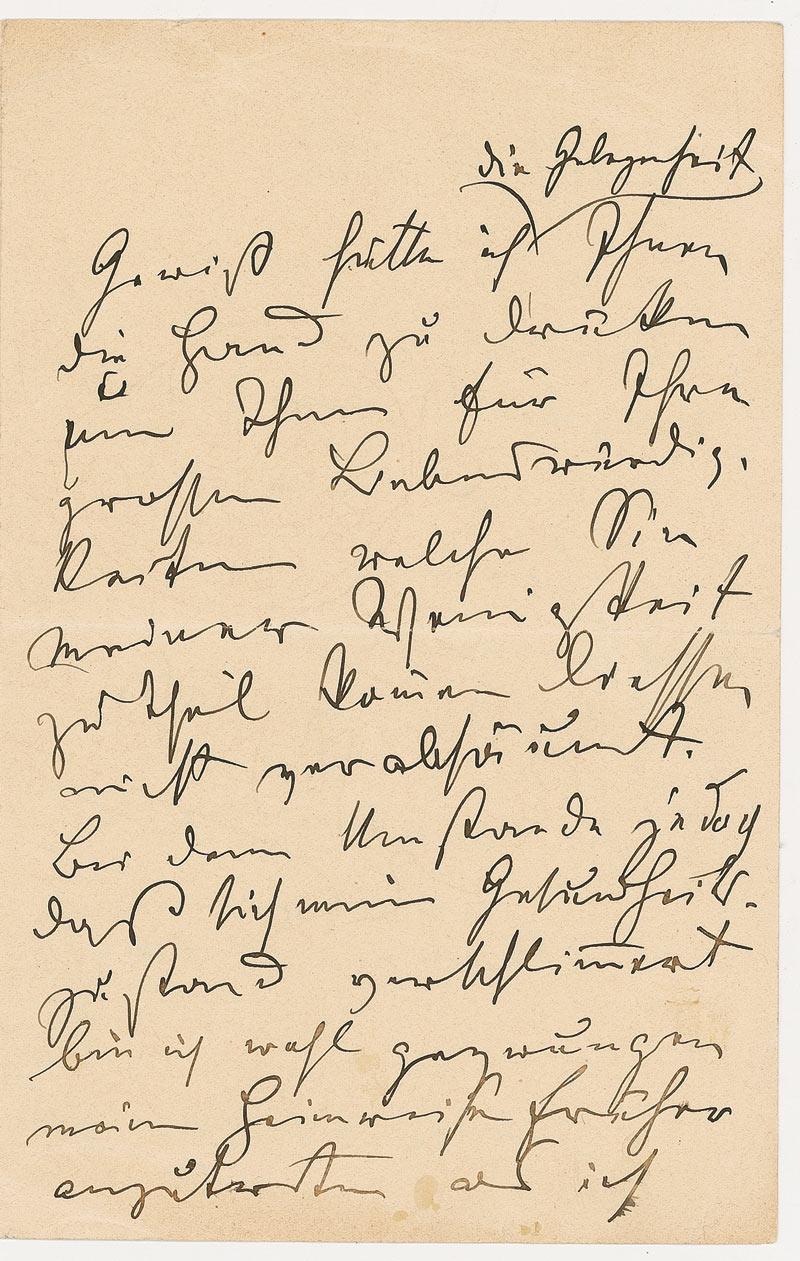 die Gelegenheit
Gewiß hätte ich Ihnen
die Hand zu drücken
um Ihnen für Ihre
grossen Liebenswürdig-
keiten welche Sie
meiner Wenigkeit
zu theil kom̄en liessen
nicht verabsäumt.
Bei dem Umstande jedoch
daß sich mein Gesundheits-
zustand verschlim̄ert
bin ich wohl gezwungen
meine Heimreise früher
anzutreten als ich